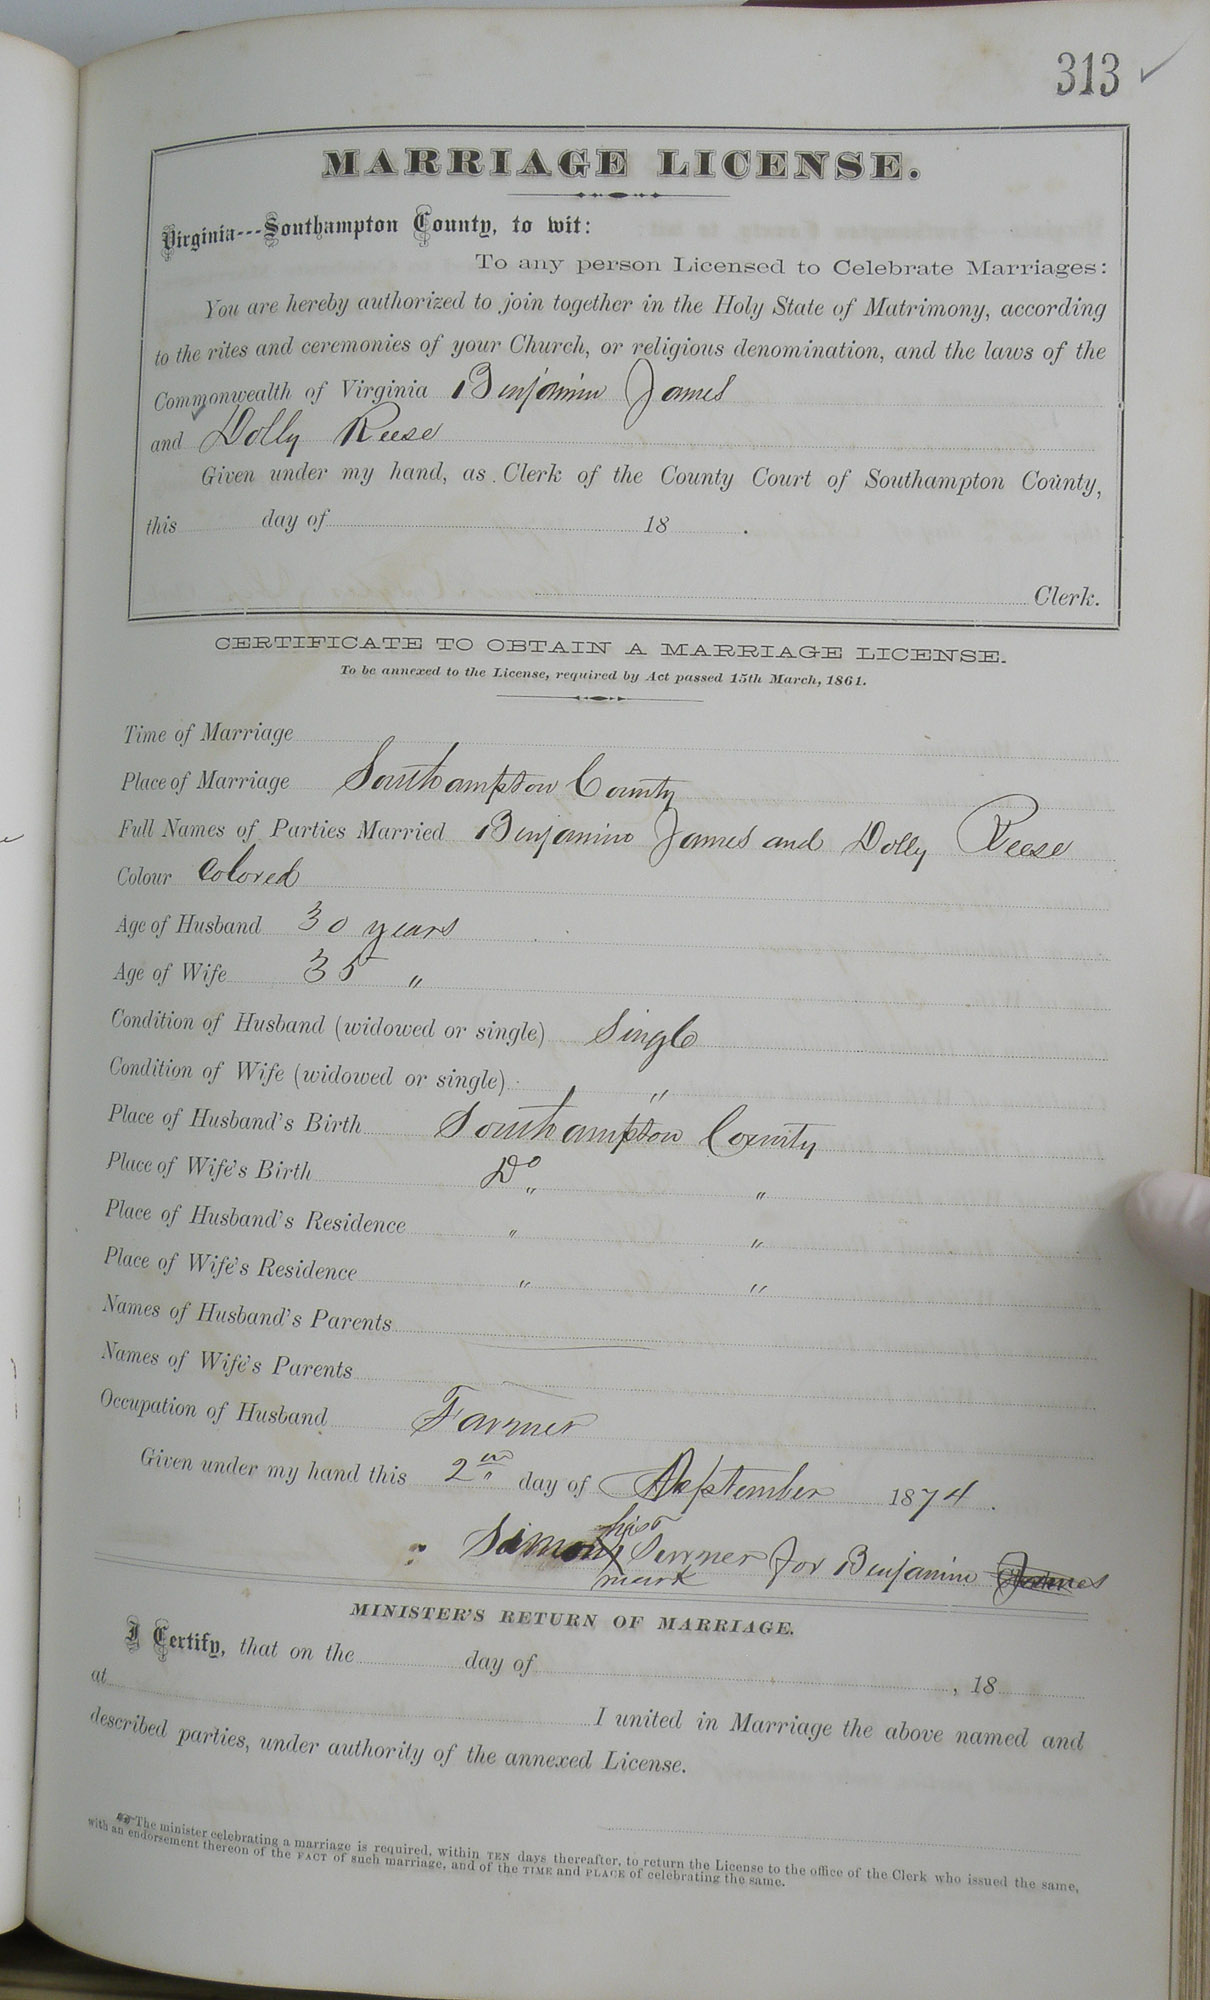 313 ✓
MARRIAGE LICENSE.
Virginia---Southampton County, to wit:
To any person Licensed to Celebrate Marriages:
You are hereby authorized to join together in the Holy State of Matrimony, according
to the rites and ceremonies of your Church, or religious denomination, and the laws of the
Commonwealth of Virginia Benjamin James
and Dolly Reese
Given under my hand, as Clerk of the County Court of Southampton County,
this day of 18 .
Clerk.
CERTIFICATE TO OBTAIN A MARRIAGE LICENSE.
To be annexed to the License, required by Act passed 15th March, 1861.
Time of Marriage
Place of Marriage Southampton County
Full Names of Parties Married Benjamin James and Dolly Reese
Colour Colored
Age of Husband 30 years
Age of Wife 35 "
Condition of Husband (widowed or single) Single
Condition of Wife (widowed or single) "
Place of Husband's Birth Southampton County
Place of Wife's Birth Do " "
Place of Husband's Residence " "
Place of Wife's Residence " "
Names of Husband's Parents
Names of Wife's Parents
Occupation of Husband Farmer
Given under my hand this 2nd day of September 1874.
his
Simon X for Benjamin James
mark
MINISTER'S RETURN OF MARRIAGE.
I Certify, that on the day of , 18
at I united in Marriage the above named and
described parties, under authority of the annexed License.
The minister celebrating a marriage is required, within TEN days thereafter, to return the License to the office of the Clerk who issued the same,
with an endorsement thereon of the FACT of such marriage, and of the TIME and PLACE of celebrating the same.